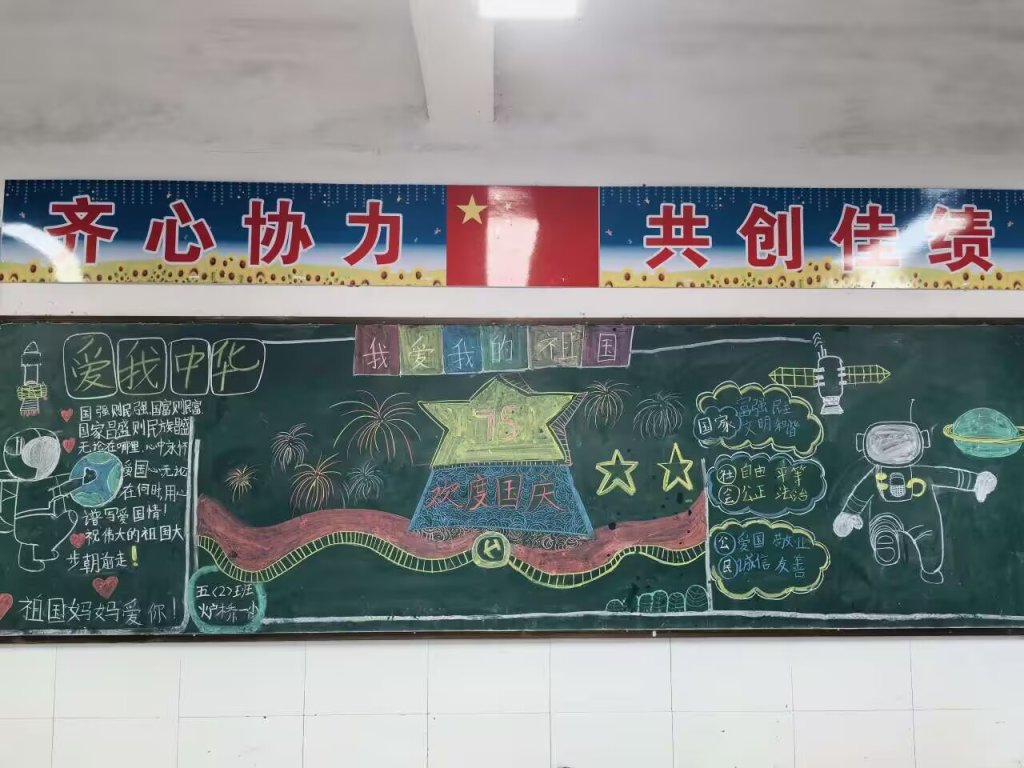 齐心协力 共创佳绩
爱我中华
国强则民强,国富则民富
国家昌盛则民族盛
无论在哪里,心中永怀
爱国心无论
在何时,用心
谱写爱国情!
祝伟大的祖国大
步朝前走!
祖国妈妈爱你!
我爱我的祖国
75
欢度国庆
五<2>班
炉桥一小
国家
富强 民主
文明 和谐
社会
自由 平等
公正 法治
公民
爱国 敬业
诚信 友善